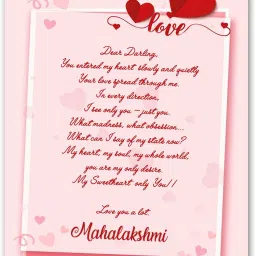 love
Dear Darling,
You entered my heart slowly and quietly
Your love spread through me.
In every direction,
I see only you – just you.
What madness, what obsession...
What can I say of my state now?
My heart, my soul, my whole world,
you are my only desire.
My Sweetheart only You!!
Love you a lot
Mahalakshmi